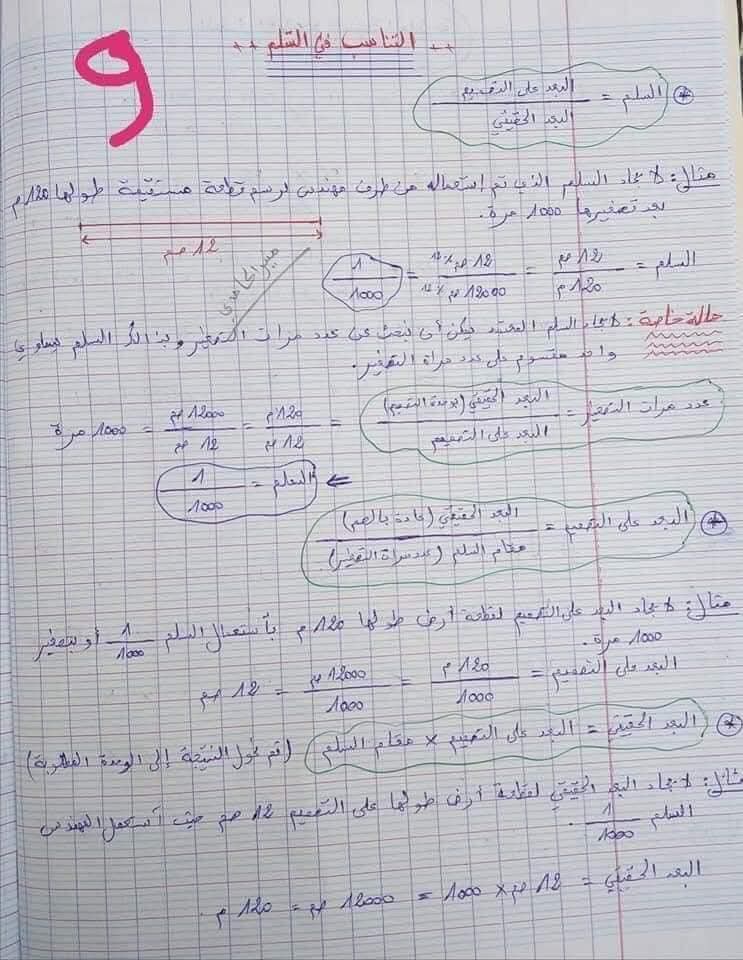 9
++ التناسب في السلم ++
* السلم = البعد على التصميم / البعد الحقيقي
مثال: لإيجاد السلم الذي تم إستعماله من طرف مهندس لرسم قطعة مستقيمة طولها 120 م
بعد تصغيرها 1000 مرة.
12 صم
السلم = 12 صم / 120 م = 12 صم ÷12 / 12000 صم ÷12 = 1 / 1000
حالة خاصة: لإيجاد السلم المعتمد يمكن أن نبحث عن عدد مرات التصغير وبذالك السلم يساوي
واحد مقسوم على عدد مراة التصغير.
عدد مرات التصغير = البعد الحقيقي (بوحدة التصميم) / البعد على التصميم = 120 م / 12 صم = 12000 صم / 12 صم = 1000 مرة
⇐ السلم = 1 / 1000
* البعد على التصميم = البعد الحقيقي (عادة بالصم) / مقام السلم (عدد مراة التصغير)
مثال: لإيجاد البعد على التصميم لقطعة أرض طولها 120 م بأستعمال السلم 1 / 1000 أو بتصغير
1000 مرة.
البعد على التصميم = 120 م / 1000 = 12000 صم / 1000 = 12 صم
* البعد الحقيقي = البعد على التصميم × مقام السلم (ثم نحول النتيجة إلى الوحدة المطلوبة)
مثال: لإيجاد البعد الحقيقي لقطعة أرض طولها على التصميم 12 صم حيث أستعمل المهندس
السلم 1 / 1000.
البعد الحقيقي = 12 صم × 1000 = 12000 صم = 120 م.